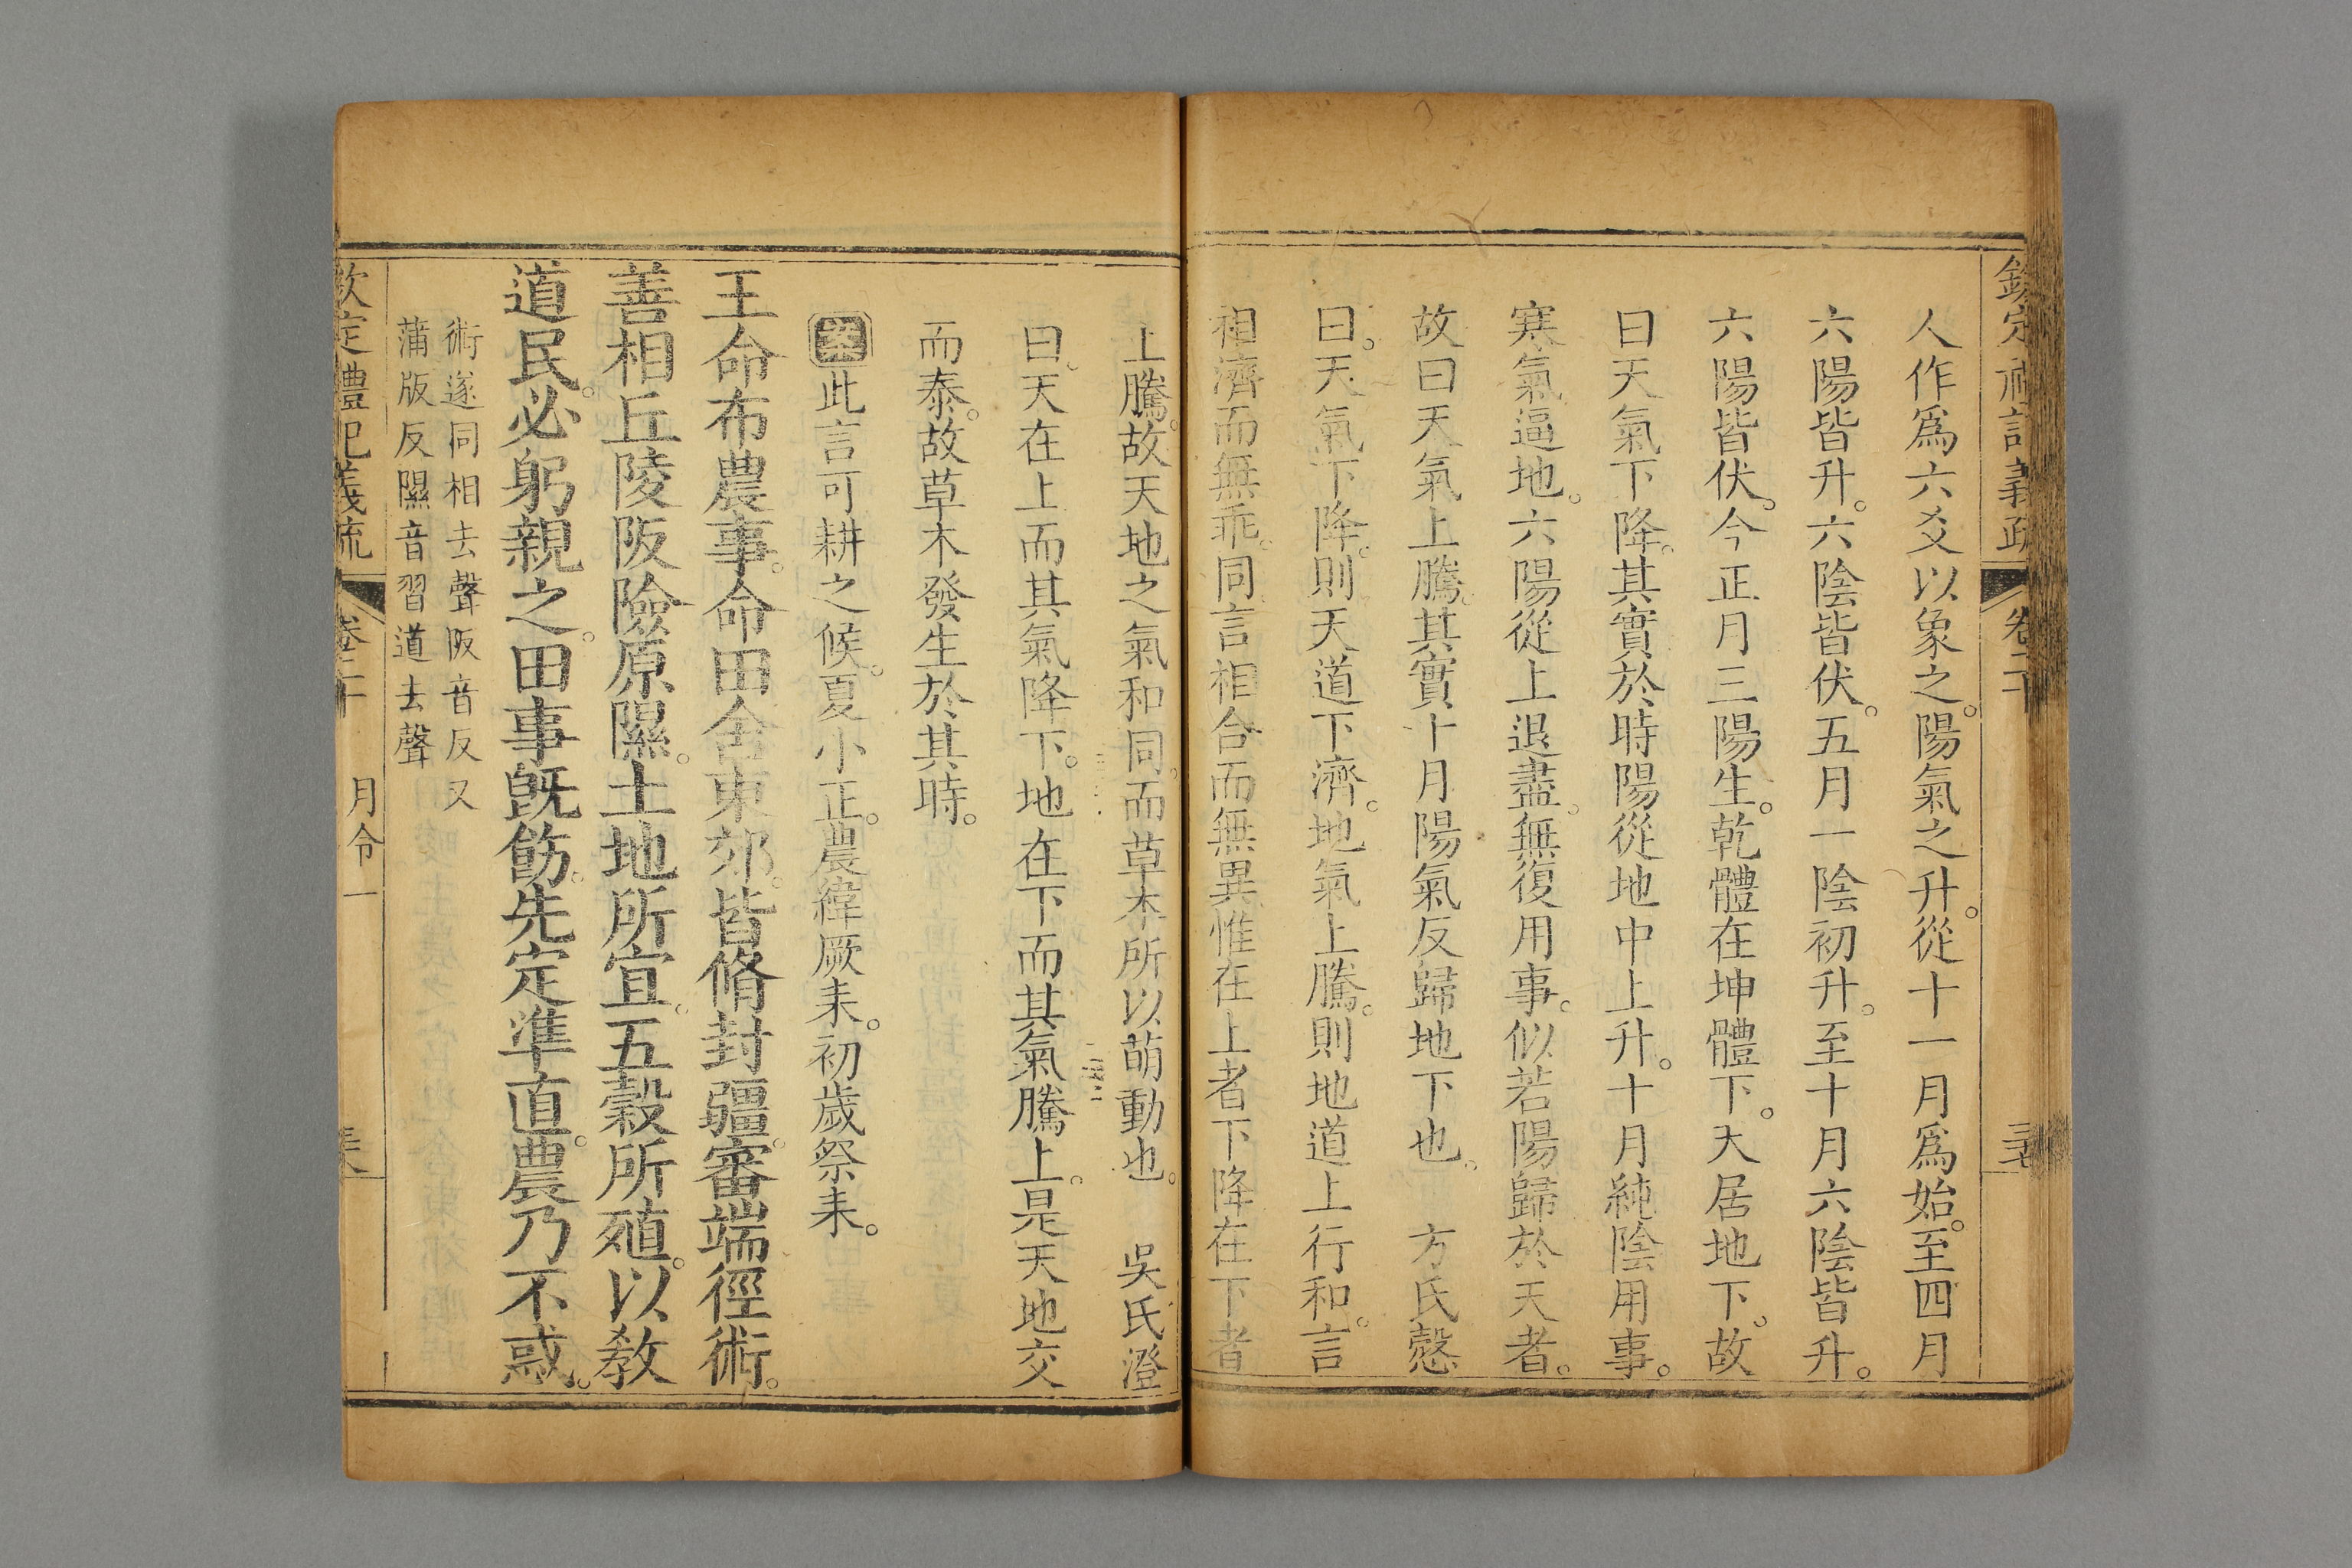 欽定禮記義疏 卷二十
人作爲六爻以象之。陽氣之升。從十一月爲始。至四月
六陽皆升。六陰皆伏。五月一陰初升。至十月六陰皆升。
六陽皆伏。今正月三陽生。乾體在坤體下。天居地下。故
曰天氣下降。其實於時陽從地中上升。十月純陰用事。
寒氣逼地。六陽從上退盡。無復用事。似若陽歸於天者。
故曰天氣上騰。其實十月陽氣反歸地下也。 方氏慤
曰。天氣下降。則天道下濟。地氣上騰。則地道上行和。言
相濟而無乖。同言相合而無異惟在上者下降在下者
上騰。故天地之氣和同。而草木所以萌動也。 吳氏澄
曰。天在上而其氣降下。地在下而其氣騰上。是天地交
而泰。故草木發生於其時。
此言可耕之候。夏小正。農緯厥耒。初歲祭耒。
王命布農事。命田舍東郊。皆脩封疆。審端徑術。
善相丘陵阪險原隰。土地所宜。五穀所殖。以敎
道民。必躬親之。田事旣飭。先定準直。農乃不惑。
術遂同相去聲阪音反又
蒲版反隰音習道去聲
欽定禮記義疏 卷二十 月令一